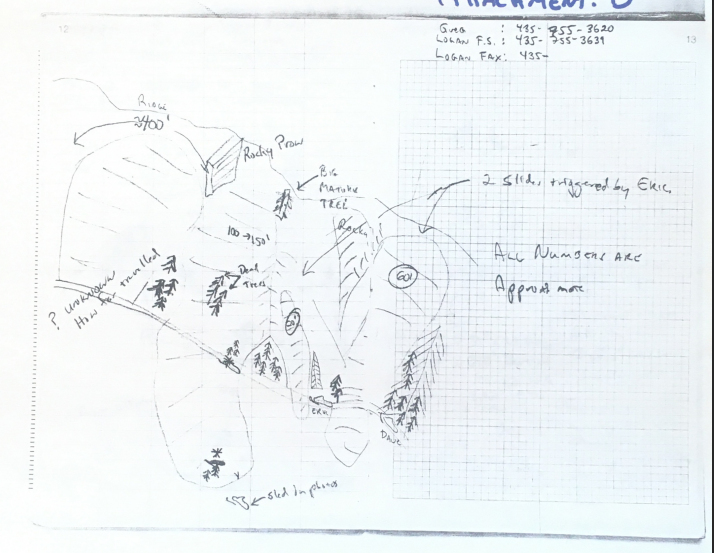 ATTACHMENT
12
13
GREG : 435-755-3620
LOGAN F.S. : 435-755-3639
LOGAN FAX: 435-
RIDGE
2400'
Rocky Prow
BIG
MATURE
TREE
2 Slides triggered by ERIC
Rocks
100→150'
ALL NUMBERS ARE
Approximate
60'
Dead
Trees
? unknown
How far travelled
ERIC
DAVE
sled in photos